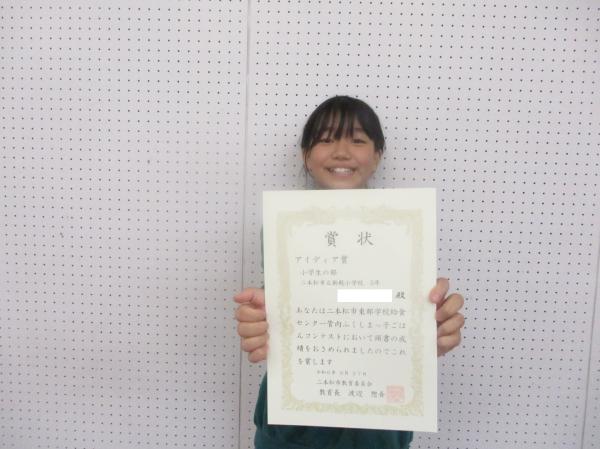 賞状
アイディア賞
小学生の部
二本松市立新殿小学校 5年
殿
あなたは二本松市東部学校給食
センター管内ふくしまっ子ごは
んコンテストにおいて頭書の成
績をおさめられましたのでこれ
を賞します
二本松市教育委員会
教育長 渡辺